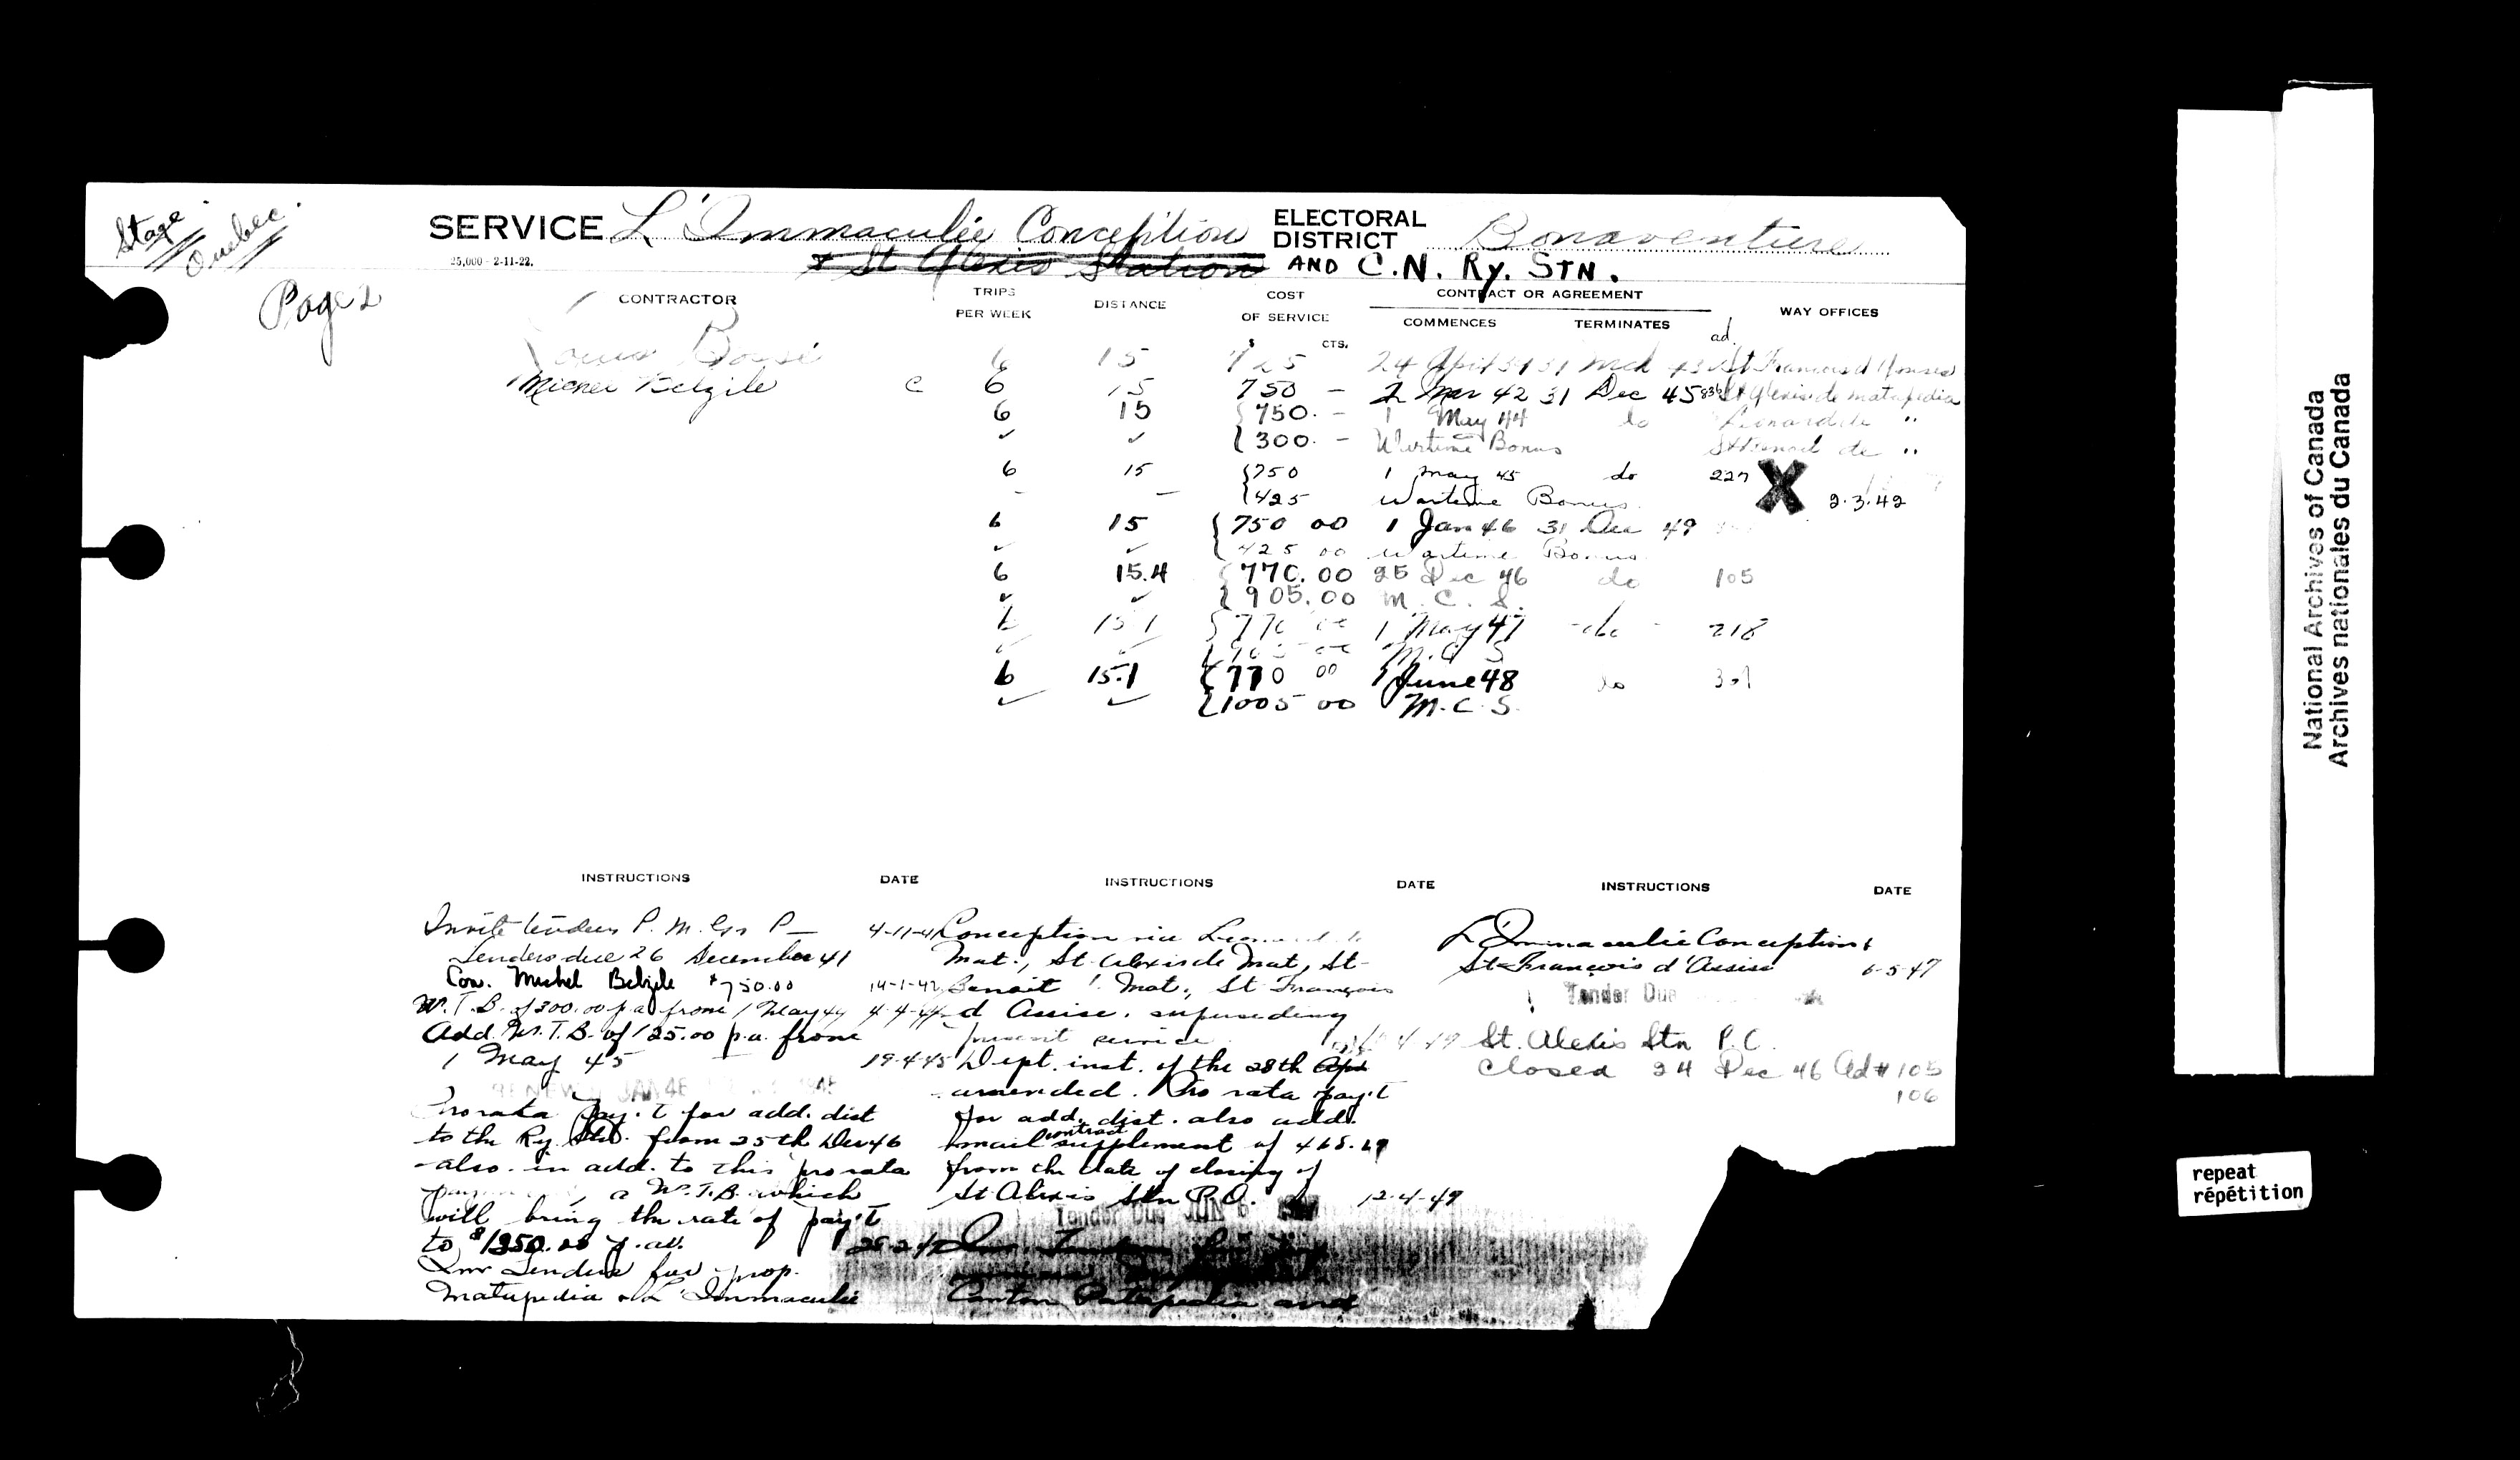 Stage
Quebec.
SERVICE L'Immaculée Conception
ELECTORAL DISTRICT Bonaventure
25,000 - 2-11-22.
& St Alexis Station AND C.N. RY. STN.
Page 2
CONTRACTOR TRIPS PER WEEK DISTANCE COST OF SERVICE CONTRACT OR AGREEMENT COMMENCES TERMINATES WAY OFFICES
$ CTS. ad.
Louis 6 15 725 24 April 31 Mch 43 St Francois d'Assise
Michel Belzile C 6 15 750 - 2 Mar 42 31 Dec 45 St Alexis de Matapedia
6 15 { 750. - 1 May 44 do "
✓ ✓ { 300. - Wartime Bonus de "
6 15 { 750 1 May 45 do 227 X
- - { 425 Wartime Bonus. 2.3.42
6 15 { 750 00 1 Jan 46 31 Dec 49
✓ ✓ { 425 00 Wartime Bonus
6 15.4 { 770.00 25 Dec 46 do 105
✓ ✓ { 905.00 M.C.S.
6 15 1 { 770 00 1 May 47 -do- 218
✓ ✓ { M.C.S
6 15.1 { 770 00 1 June 48 do
✓ ✓ { 1005 00 M.C.S.
INSTRUCTIONS DATE INSTRUCTIONS DATE INSTRUCTIONS DATE
Invite tenders P.M.
Tenders due 26 December 41
Con. Michel Belzile $750.00 14-1-42
W.T.B. of 300.00 p.a from 1 May 44 4-4-44
Add. W.T.B. of 125.00 p.a. from
1 May 45 19-4-45
RENEW JAN 46
Prorata Pay't for add. dist
to the Ry. Stn. from 25th Dec 46
also in add. to this prorata
a W.T.B. which
will bring the rate of pay't
to $1350.00 p.a.
Inv Tenders for prop.
Matapedia & L'Immaculée
Conception via
Mat., St. Alexis de Mat, St-
Benoit Mat., St François
d Assise. superseding
present service
Dept. inst. of the 28th
amended. Pro rata pay't
for add. dist. also add.
mail contract supplement of
from the date of closing of
St Alexis Stn P.O. 12-4-47
Tender Due JUN
Canton Patapedia and
L'Immaculée Conception &
St-François d'Assise 6-5-47
Tender Due
St. Alexis Stn P.O.
Closed 24 Dec 46 Ad # 105
106
National Archives of Canada
Archives nationales du Canada
repeat
répétition